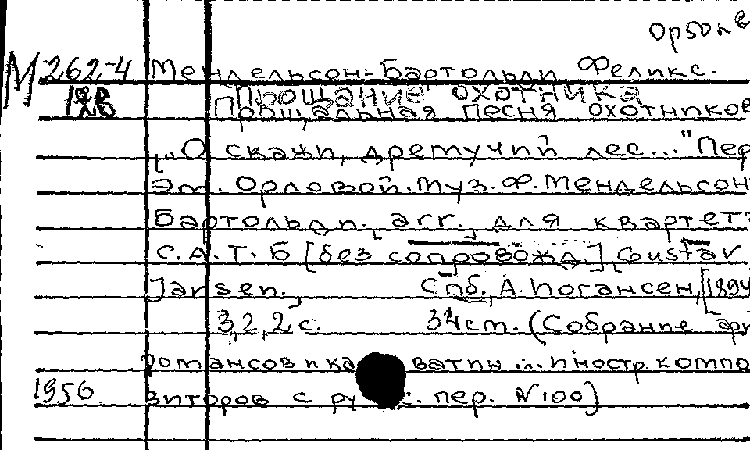 М 262-4 Мендельсон-Бартольди Феликс.
Прощание охотника
Прощальная песня охотников
[„О скажи, дремучий лес..." Пер
Эм. Орловой. муз. Ф. Мендельсон
Бартольди., arr., для квартет
С.А.Т.Б [без сопровожд.] Gustav
Jansen., Спб., А. Иогансен, [1894
3,2,2 с. 34 ст. (Собрание
романсов и ка ватин и иностр. компо
1956 зиторов с ру с. пер. N 100)